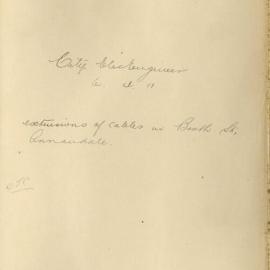 City Elec Engineer
extensions of cables in Booth St,
Annandale.